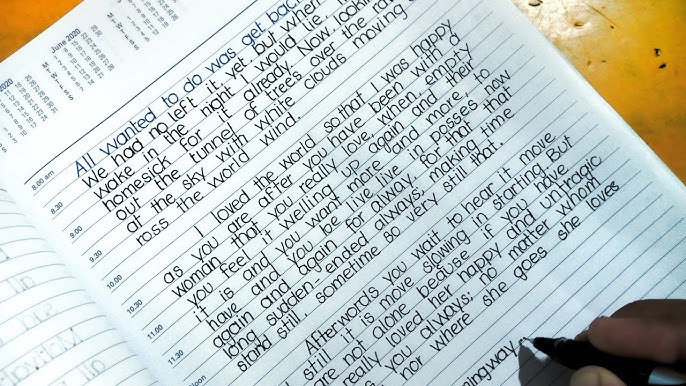 June 2020
2020
8.00 am
8.30
9.00
9.30
10.00
10.30
11.00
11.30
noon
All wanted to do was get bac
We had no left it yet but when
wake in the night I would lie,
homesick for it already. Now looking
out the tunnel of trees over the
at the sky with white clouds moving
ross the world wind.
I loved the world so that I was happy
as you are after you have been with a
woman that you really love, when, empty
you feel it welling up again and their
it is and you want more and more, to
have and you be live live in posses now
again and again for alway. for that that
long sudden- ended always; making time
stand still, sometime so very still that.
Afterwords you wait to hear it move
still it is move slowing in starting But
are not alone because if you have
really loved her happy and untragic
s you always; no matter whom
nor where she goes she loves
ningway